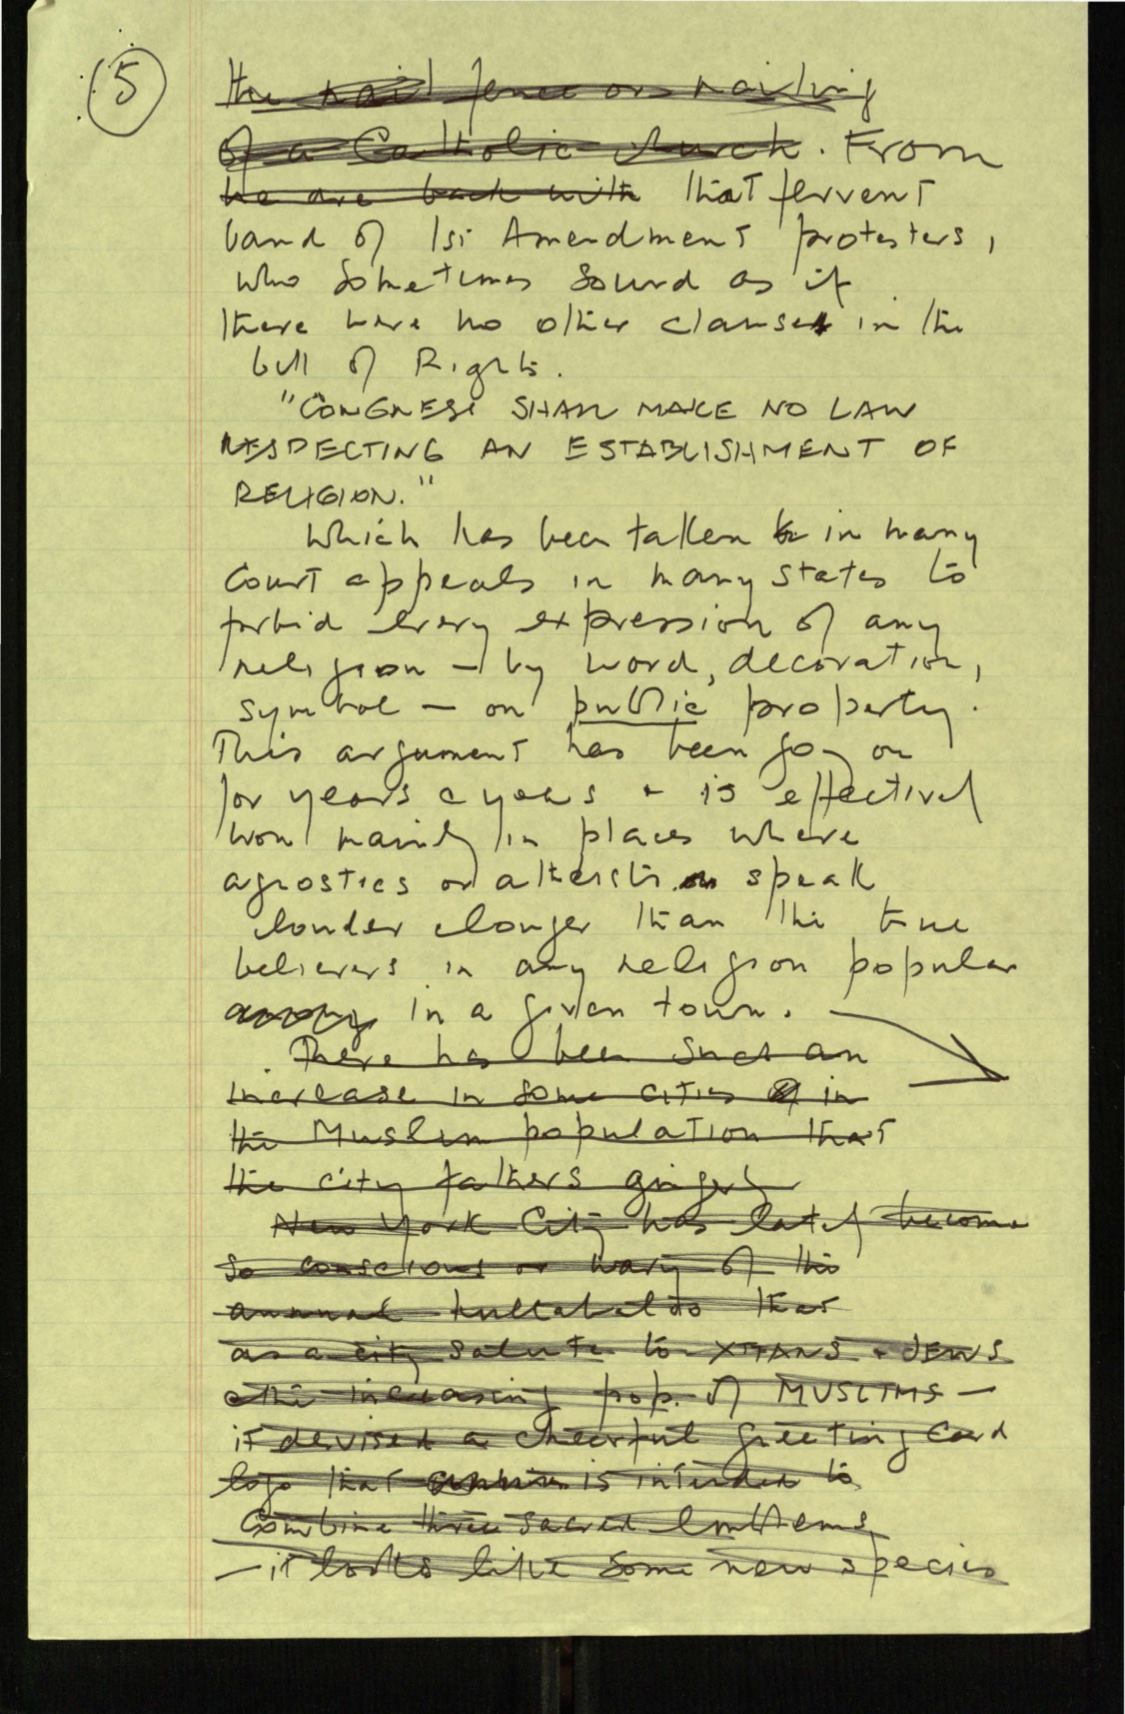 5
the rail fence or railing
of a Catholic church. From
we are back with that fervent
band of 1st Amendment protesters,
who sometimes sound as if
there were no other clauses in the
bill of Rights.
"CONGRESS SHALL MAKE NO LAW
RESPECTING AN ESTABLISHMENT OF
RELIGION."
Which has been taken in many
Court appeals in many states to
forbid every expression of any
religion – by word, decoration,
symbol – on public property.
This argument has been going on
for years & years + is effectively
won mainly in places where
agnostics or atheists speak
louder & longer than the true
believers in any religion popular
in a given town.
There has been such an
increase in some cities in
the Muslim population that
the city fathers gingerly
New York City has lately become
so conscious or wary of the
annual hullabaloo that
as a city salute to XTIANS + JEWS
& the increasing pop. of MUSLIMS –
it devised a cheerful greeting card
logo that is intended to
combine three sacred emblems
– it looks like some new species